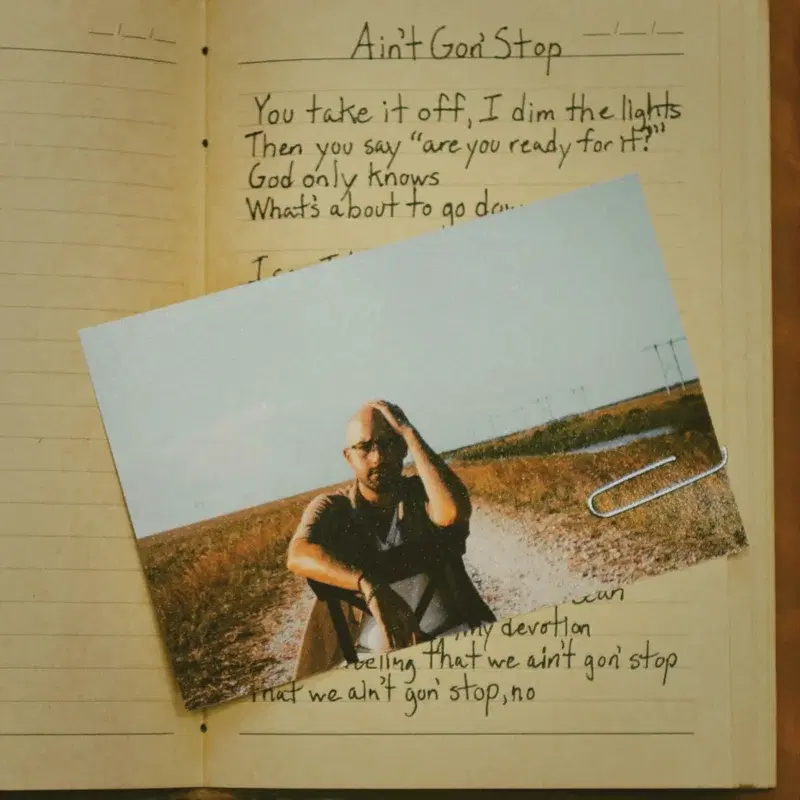 Ain't Gon' Stop
You take it off, I dim the lights
Then you say "are you ready for it?"
God only knows
What's about to go
my devotion
that we ain't gon' stop
that we ain't gon' stop, no